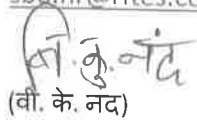 वि. कु. नंद
(वी. के. नद)